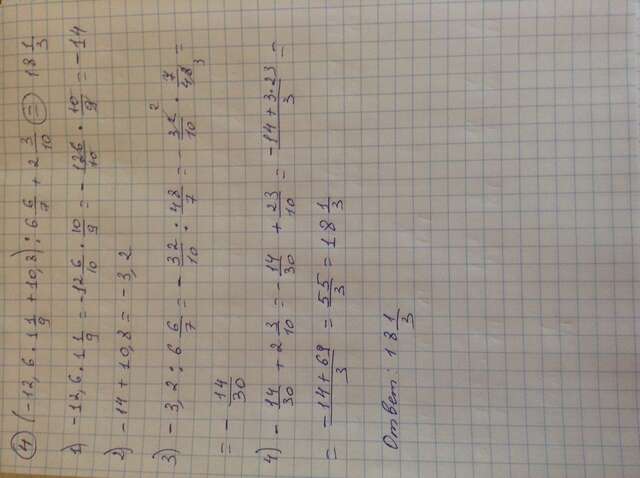 ④ (-12,6 · 1 1/9 + 10,8) : 6 6/7 + 2 3/10 = 18 1/3
1) -12,6 · 1 1/9 = -12 6/10 · 10/9 = - 126/10 · 10/9 = -14
2) -14 + 10,8 = -3,2
3) -3,2 : 6 6/7 = - 32/10 : 48/7 = - 32/10 2 · 7/48 3 =
= - 14/30
4) - 14/30 + 2 3/10 = - 14/30 + 23/10 = -14+3·23/3 =
= -14+69/3 = 55/3 = 18 1/3
Ответ: 18 1/3